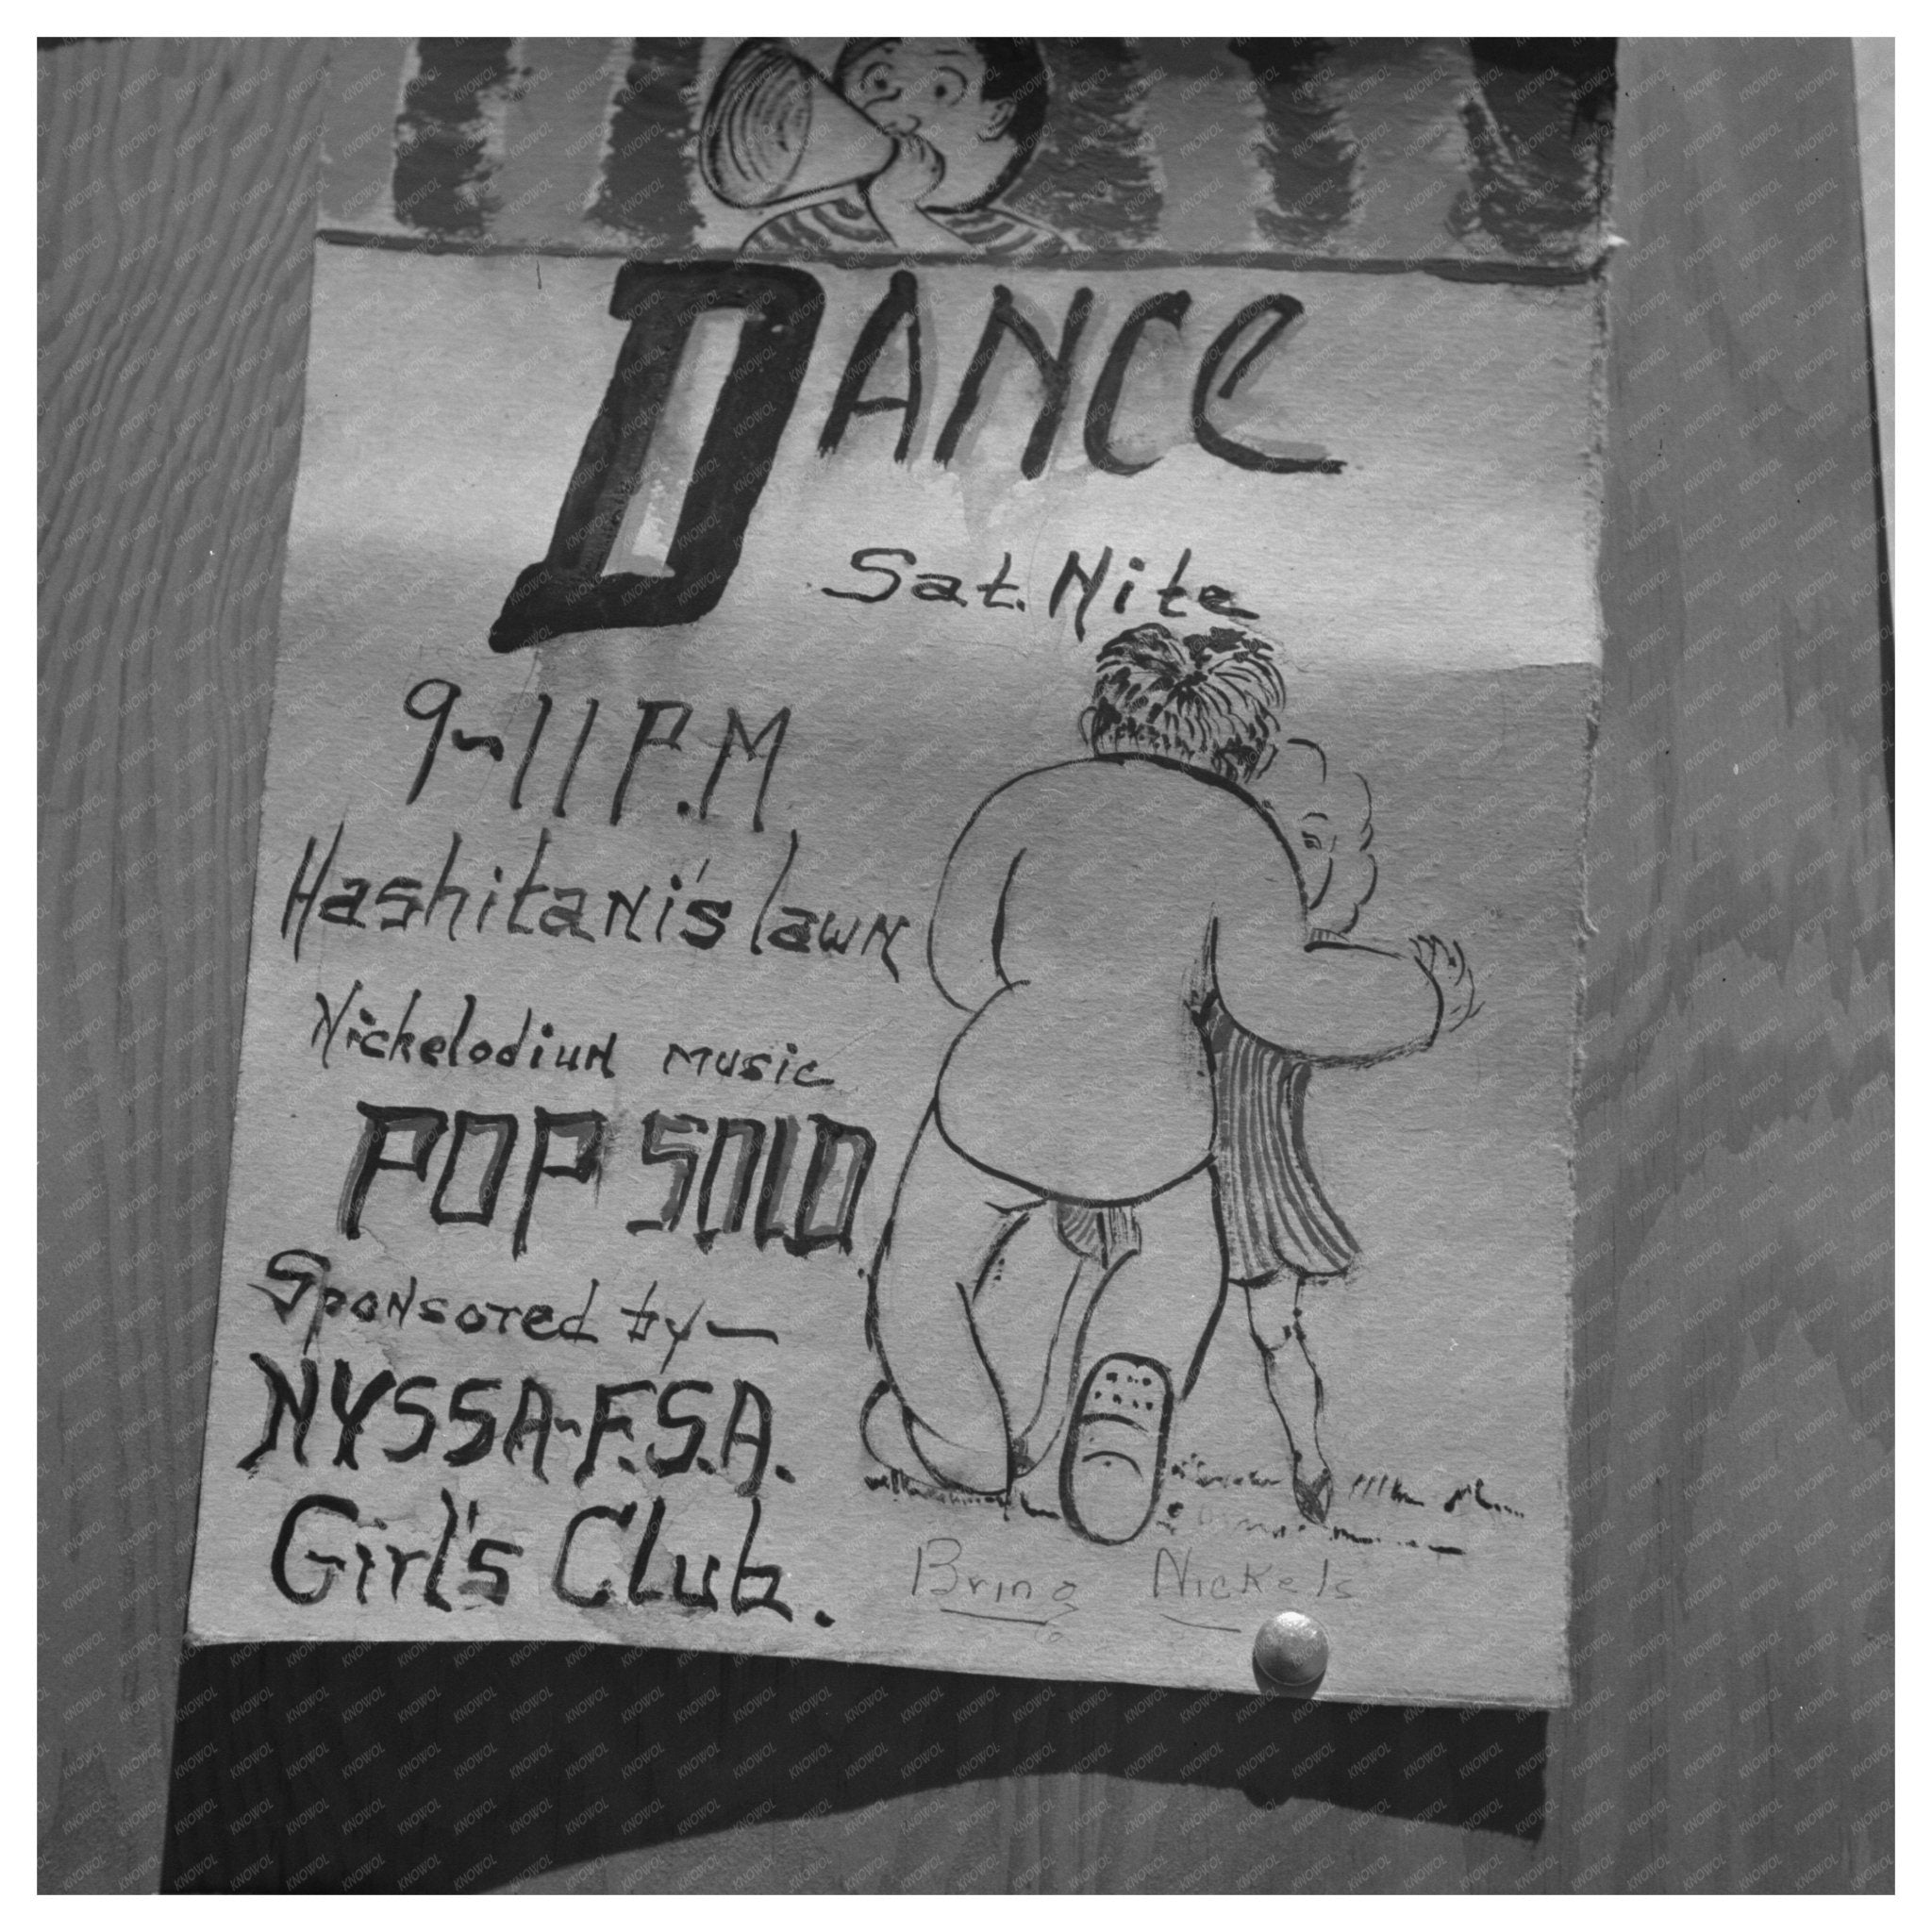 DANCE
Sat. Nite
9-11 P.M
Hashitani's lawn
Nickelodiun music
POP SOLD
Sponsored by—
NYSSA-F.S.A.
Girl's Club.
Bring Nickels
KNOWOL